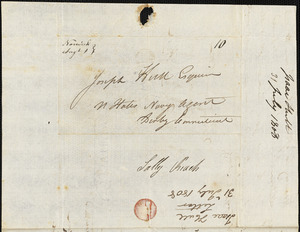 Norwich
Augt 1
10
Joseph Hull Esquire
U States Navy Agent
Derby Connecticut
Solly Reach
Isaac Hull
Letter
31 July 1808
Isaac Hull
31 July 1808